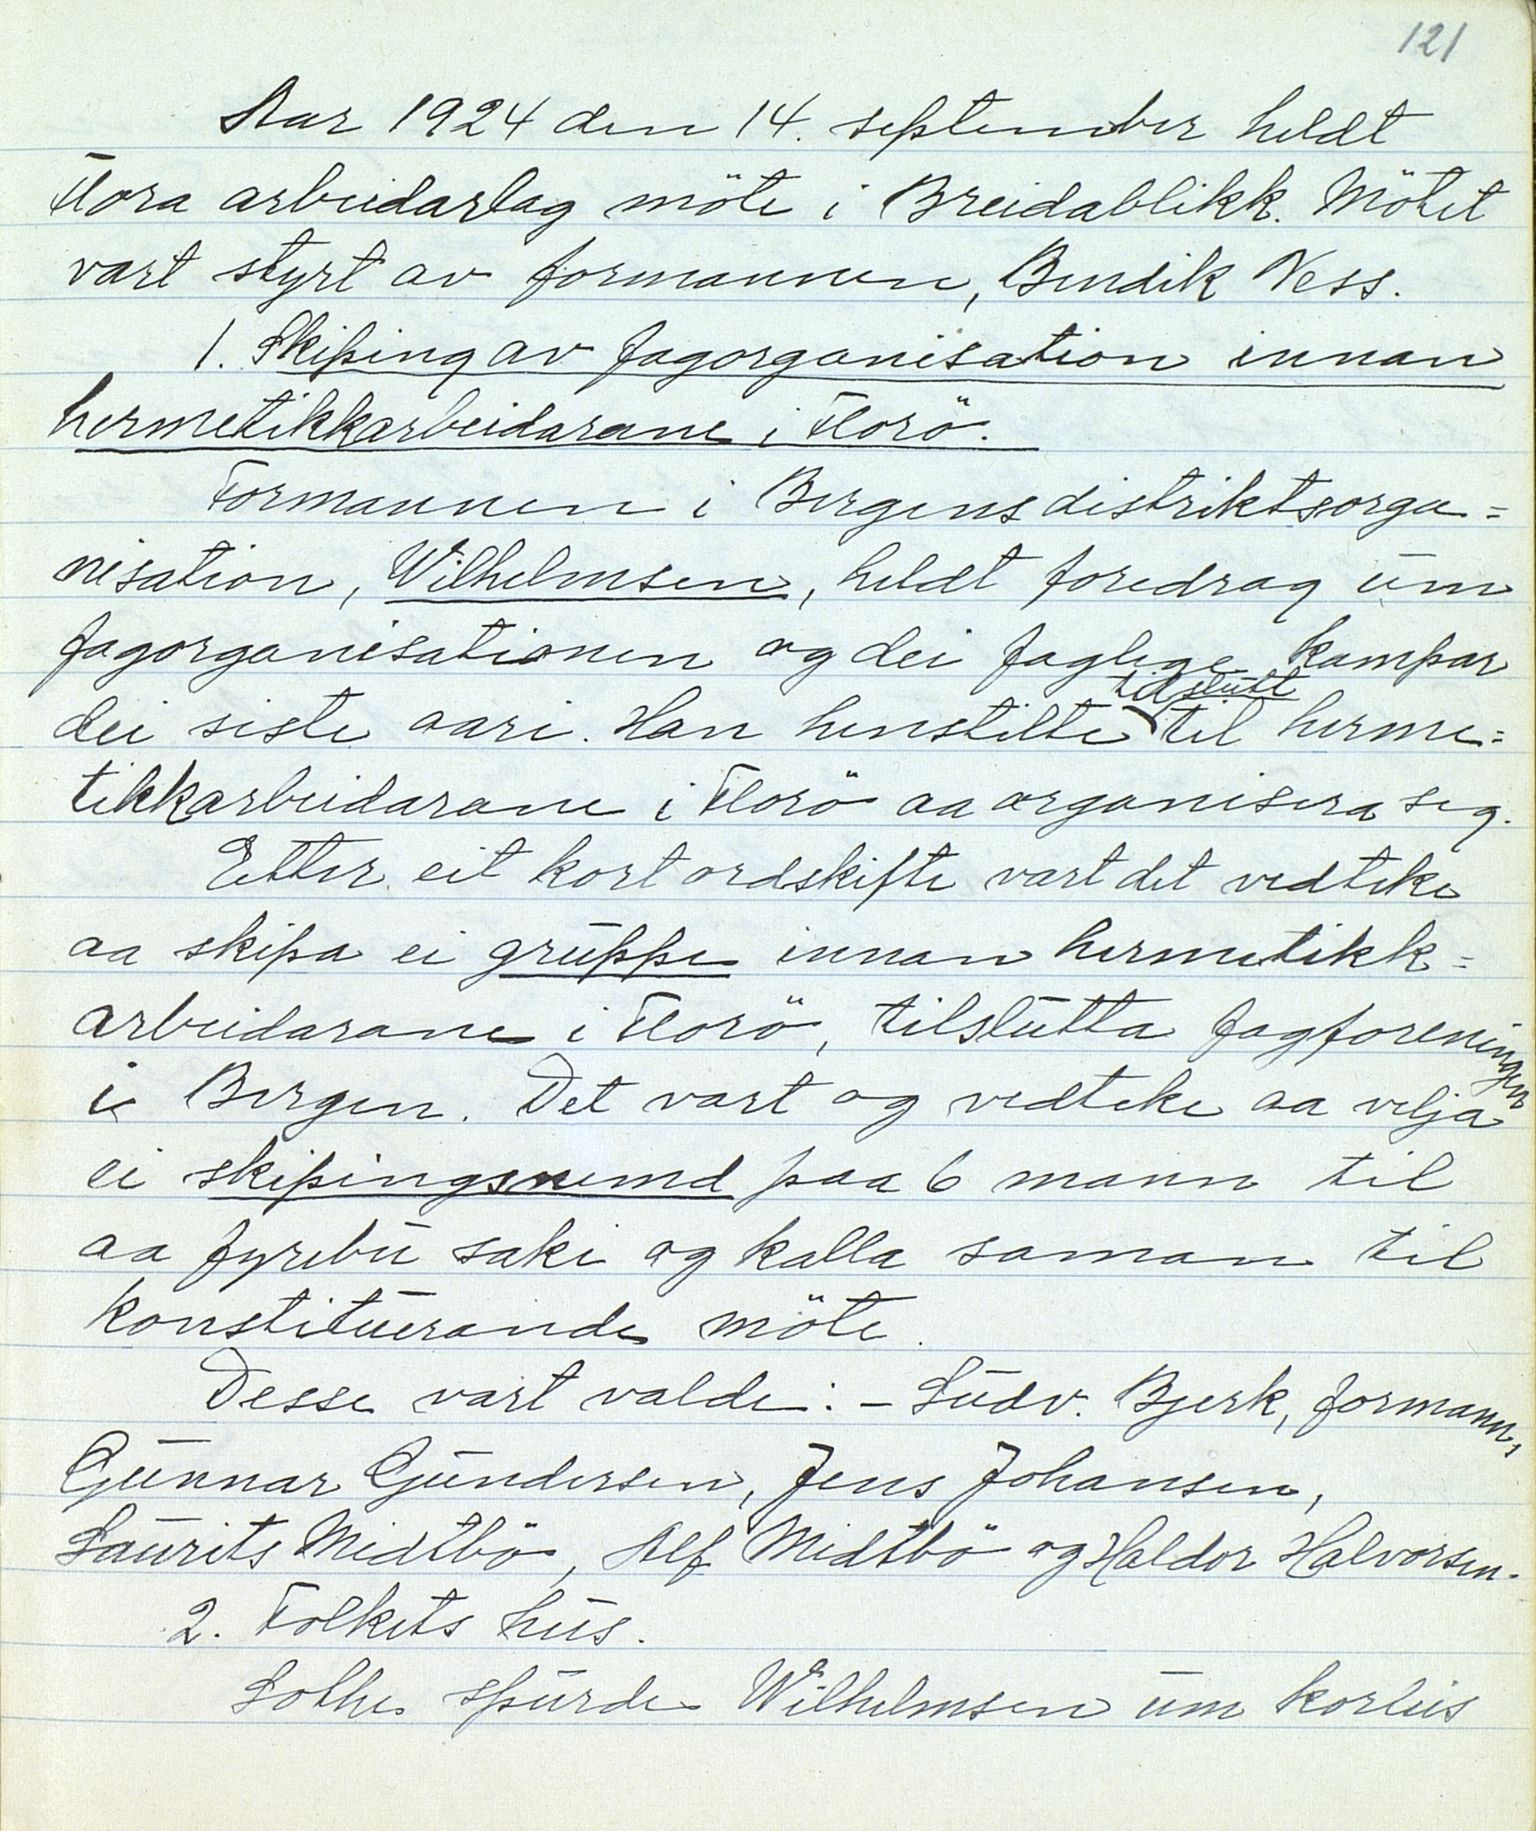 121
Aar 1924 den 14. september heldt
Flora arbeidarlag möte i Breidablikk. Mötet
vart styrt av formannen, Bendik Ness.
1. Skiping av fagorganisation innan
hermetikkarbeidarane i Florö.
Formannen i Bergens distriktsorga=
nisation, Wilhelmsen, heldt foredrag um
fagorganisationen og dei faglege kampar
tilslutt
dei siste aari. Han henstilte til herme=
tikkarbeidarane i Florö aa organisera seg.
Etter eit kort ordskifte vart det vedteke
aa skipa ei gruppe innan hermetikk=
arbeidarane i Florö, tilslutta fagforeningen
i Bergen. Det vart og vedteke aa velja
ei skipingsnemd paa 6 mann til
aa fyrebu saki og kalla saman til
konstituerande möte.
Desse vart valde: - Ludv. Bjerk, formann,
Gunnar Gundersen, Jens Johansen,
Laurits Midtbö, Alf Midtbö og Haldor Halvorsen.
2. Folkets hus.
Lothe spurde Wilhelmsen um korleis